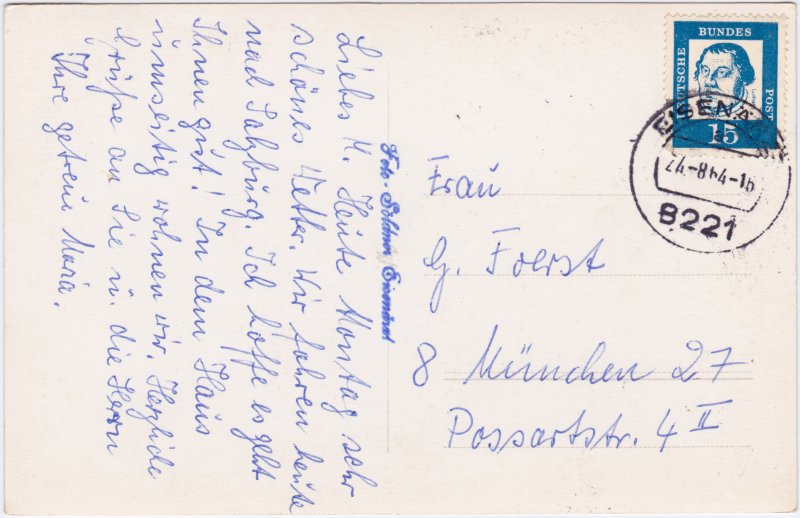 Liebes M. Heute Montag sehr
schönes Wetter. Wir fahren heute
nach Salzburg. Ich hoffe es geht
Ihnen gut! In dem Haus
umseitig wohnen wir. Herzliche
Grüße an Sie u. die Herrn
Ihre getreue Mara.
Foto-
DEUTSCHE
BUNDES
POST
15
24-8 64-16
8221
Frau
G. Foerst
8 München 27
Possartstr. 4 II